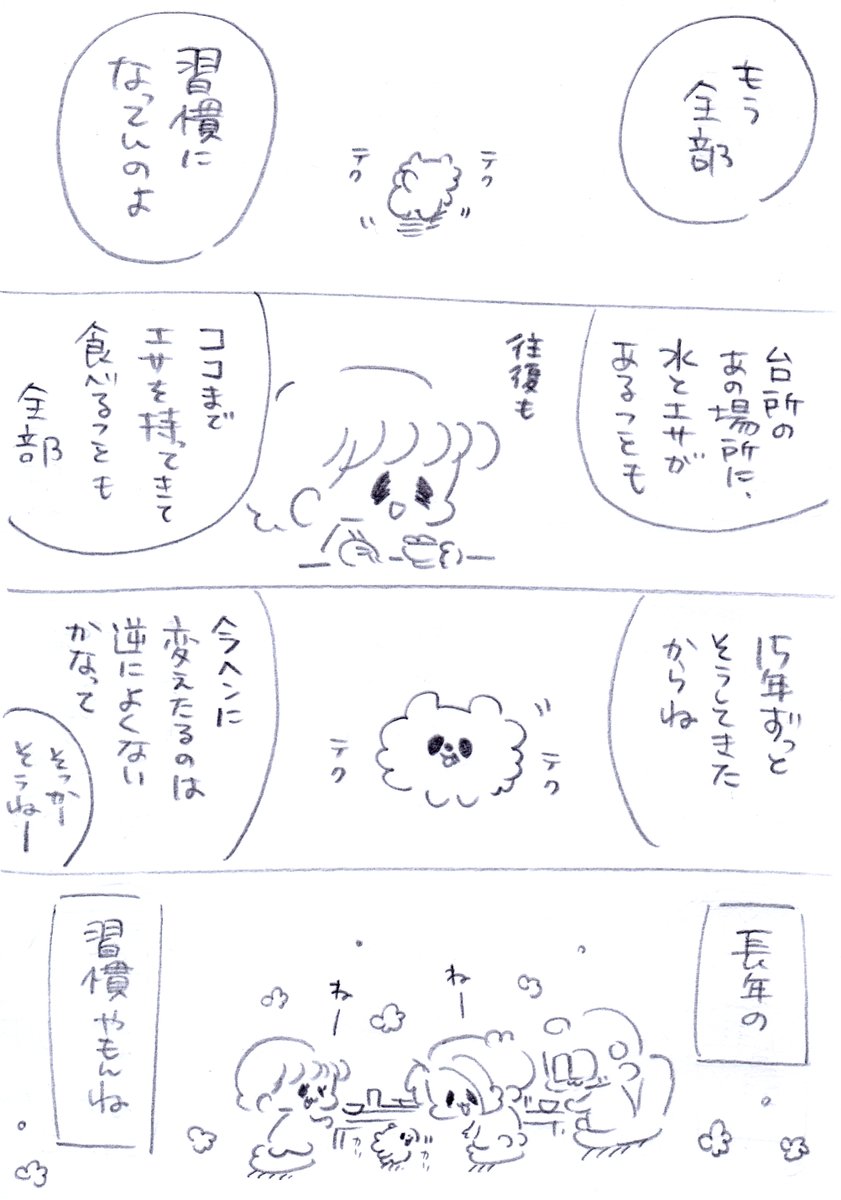 もう
全部
テク
テク
習慣に
なってんのよ
台所の
あの場所に、
水とエサが
あることも
往復も
ココまで
エサを持ってきて
食べることも
全部
15年ずっと
そうしてきた
からね
テク
テク
今ヘンに
変えたるのは
逆によくない
かなって
そっかー
そうねー
長年の
ねー
ねー
習慣やもんね